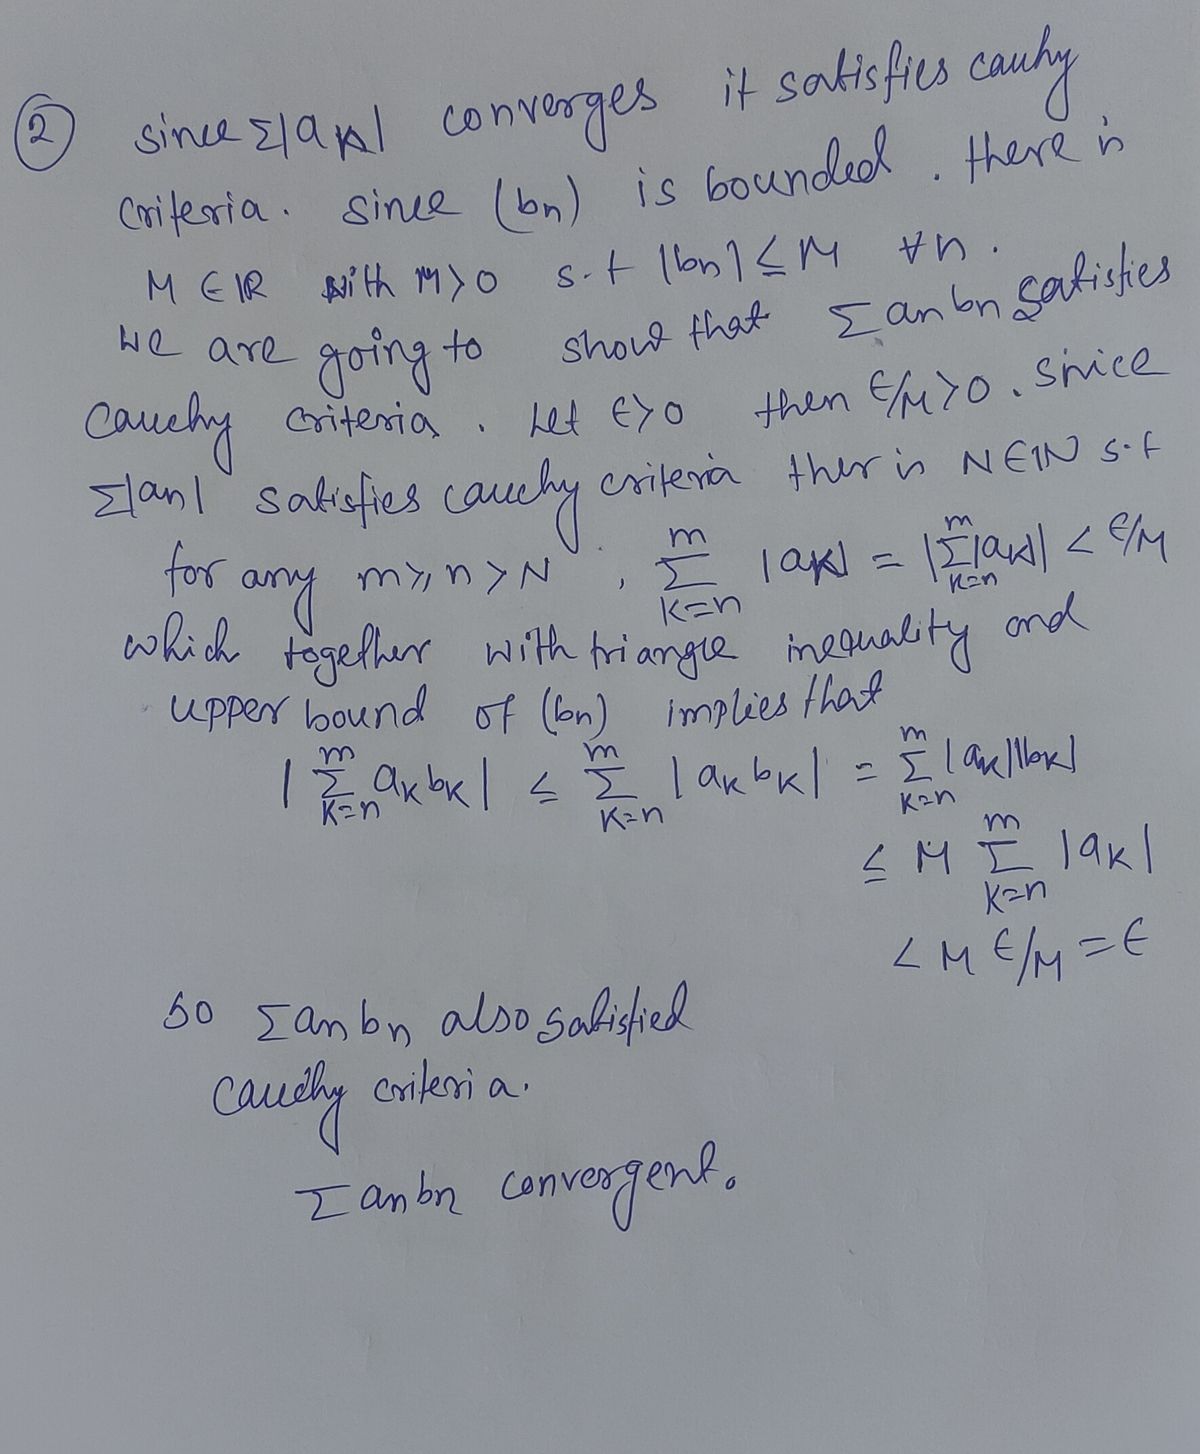 ② since Σ|aₖ| converges it satisfies cauhy
criteria. since (bn) is bounded. there is
M ∈ ℝ with M>0 s.t |bn| ≤ M ∀n.
we are going to show that Σ an bn satisfies
cauchy criteria. Let ε>0 then ε/M>0. since
Σ|an| satisfies cauchy criteria ther is N∈ℕ s.t
for any m≥n>N, Σ_{k=n}^{m} |aₖ| = |Σ_{k=n}^{m} |aₖ|| < ε/M
which together with triangle inequality and
upper bound of (bn) implies that
|Σ_{k=n}^{m} aₖ bₖ| ≤ Σ_{k=n}^{m} |aₖ bₖ| = Σ_{k=n}^{m} |aₖ||bₖ|
≤ M Σ_{k=n}^{m} |aₖ|
< M ε/M = ε
so Σ an bn also satisfied
cauchy criteria.
Σ an bn convergent.